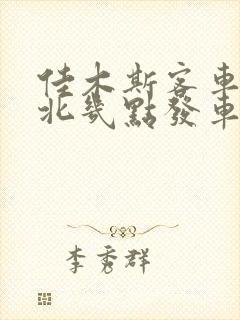 佳木斯客車
北幾點發車
李秀群